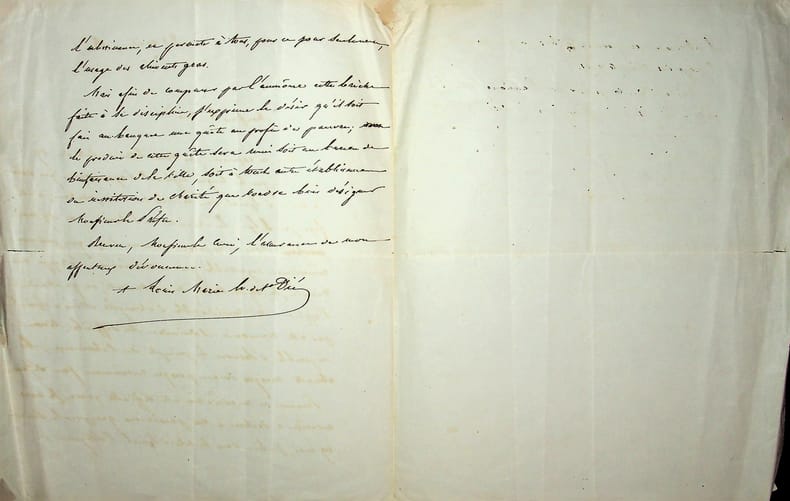 l'abstinence, en permets à tous, pour ce jour seulement,
l'usage des aliments gras.
Mais afin de compenser par l'aumône cette brèche
faite à la discipline, j'exprime le désir qu'il soit
fait au banquet une quête au profit des pauvres;
le produit de cette quête sera remis soit au bureau de
bienfaisance de la ville, soit à toute autre établissement
ou institution de charité que voudra bien désigner
Monsieur le Préfet.
Recevez, Monsieur le Curé, l'assurance de mon
affectueux dévouement.
+ Louis Marie Ev. de St Dié